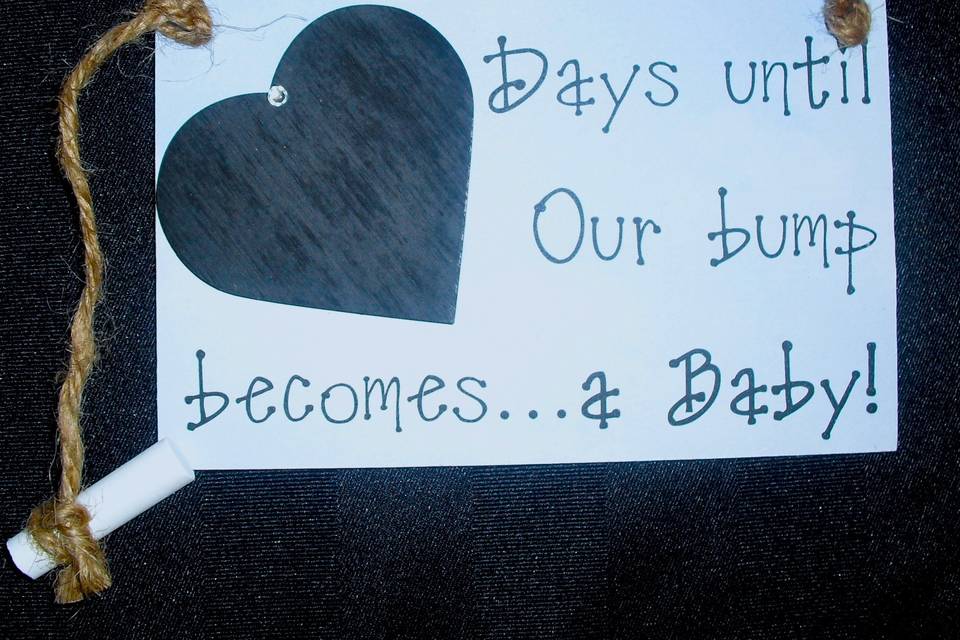 Days until
Our bump
becomes...a Baby!